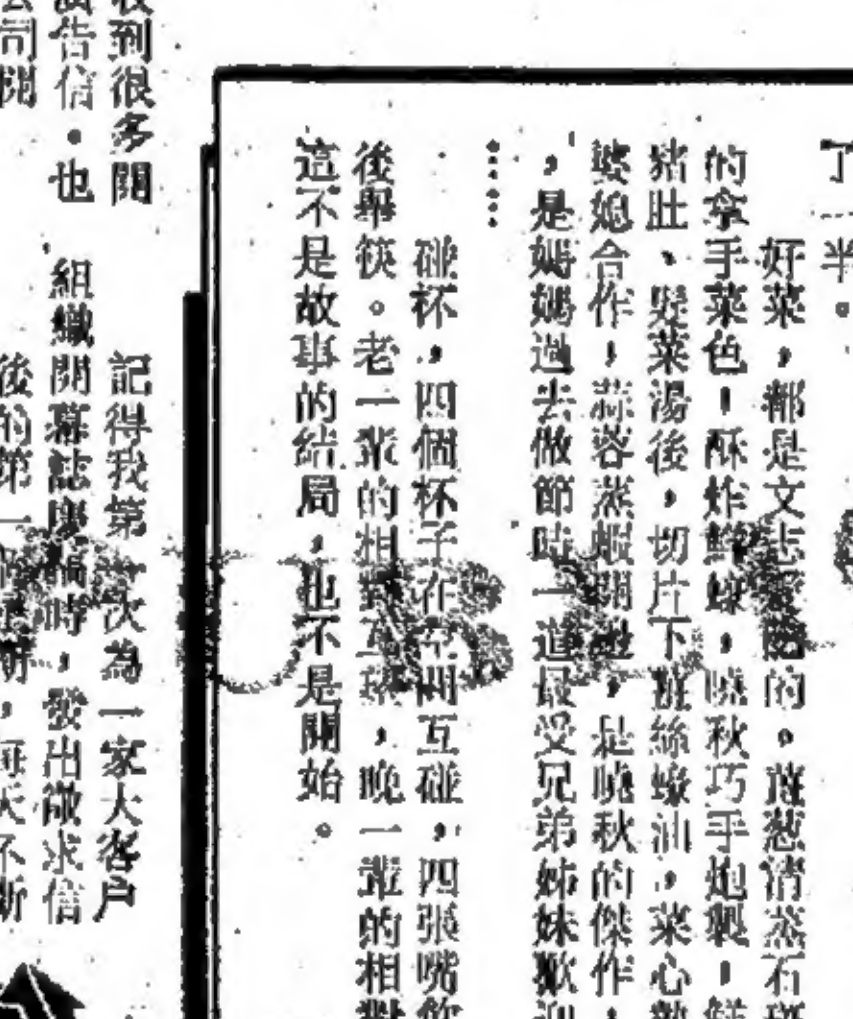 了一半。
好菜，都是文志愛吃的。薑葱清蒸石斑
的拿手菜色！酥炸鮮蠔，曉秋巧手炮製！鮮
豬肚、髮菜湯後，切片下班絲蠔油，菜心
婆媳合作！蒜蓉蒸蝦，是曉秋的傑作，
，是媽媽過去做節時一道最受兄弟姊妹歡迎
⋯⋯
碰杯，四個杯子在空間互碰，四張嘴飲
後舉筷。老一輩的相對互，晚一輩的相對
這不是故事的結局，也不是開始。
收到很多開
廣告信。也
公司開
記得我第一次為一家大客戶
組織開幕誌慶稿時，發出徵求信
後的第一個星期，每天不斷